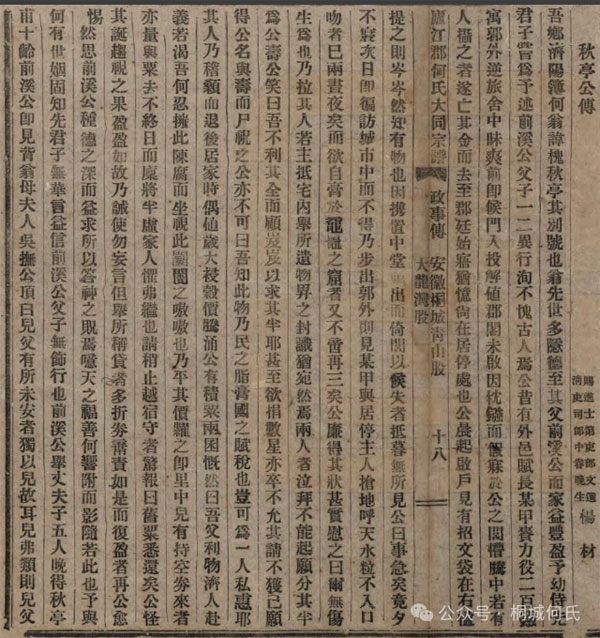 秋亭公傳
賜進士第吏部文選
清吏司郎中眷晚生
楊材
吾鄉濟陽簿何翁諱槐秋亭其別號也翁先世多隱德至其父前溪公而家益豐盈予幼侍先
君子嘗爲予述前溪公父子一二異行洵不愧古人焉公昔有外邑賦長某甲賫力役二百金
寓郭外逆旅舍中昧爽前卽候門入投解値郡閽未啟因而假寐於公之中若有
人攝之者遂亡其金而去至郡廷始寤猶憶尙在居停處也公晨起啟戶見有招文袋在右
廬江郡何氏大同宗譜
政事傳
安徽桐城靑山股
大龍灣股
十八
提之則岑岑然知有物也因携置中堂出而倚閭以候失者抵暮無所見公曰事急矣竟夕
不寐次日卽徧訪城市中而不得乃步出郭外則見某甲與居停主人搶地呼天水粒不入口
吻者已兩晝夜矣而欲自膏於黿鼉之窟者又不啻再三矣公廉得其狀甚實慰之曰爾無傷
生爲也乃拉其人若主抵宅內舉所遺物畀之封識猶宛然焉兩人者泣拜不能起願分其半
爲公壽公笑曰吾不利其全而顧岌岌以求其半耶甚至欲捐數星亦卒不允其請不獲已願
得公名與壽而尸祝之公亦不可曰吾知此物乃民之脂膏國之賦稅也豈可爲一人私惠耶
其人乃稽顙而退後居家時偶値歲大祲穀價騰涌公有積粟兩囷慨然曰吾父利物濟人赴
義若渴吾何忍擁此陳腐而坐視此闤闠之嗷嗷也乃平其價糶之卽里中兒有持空劵來者
亦量與粟去不終日而廩將半盧家人懼弗繼也請稍止越宿守者驚報曰舊粟悉還矣公怪
其誕趨視之果盈盈如故乃誡使勿妄言但舉所稱貸者多折劵棄責如是而復盈者再公愈
惕然思前溪公種德之深而益求所以答神之貺焉噫天之福善何響附而影隨若此也予與
何有世姻固知先君子無華言益信前溪公父子無飾行也前溪公舉丈夫子五人晚得秋亭
甫十齡前溪公卽見背翁母夫人吳撫公頂曰兒父有所未安者獨以兒故耳兒弗類則兒父
公众号 · 桐城何氏